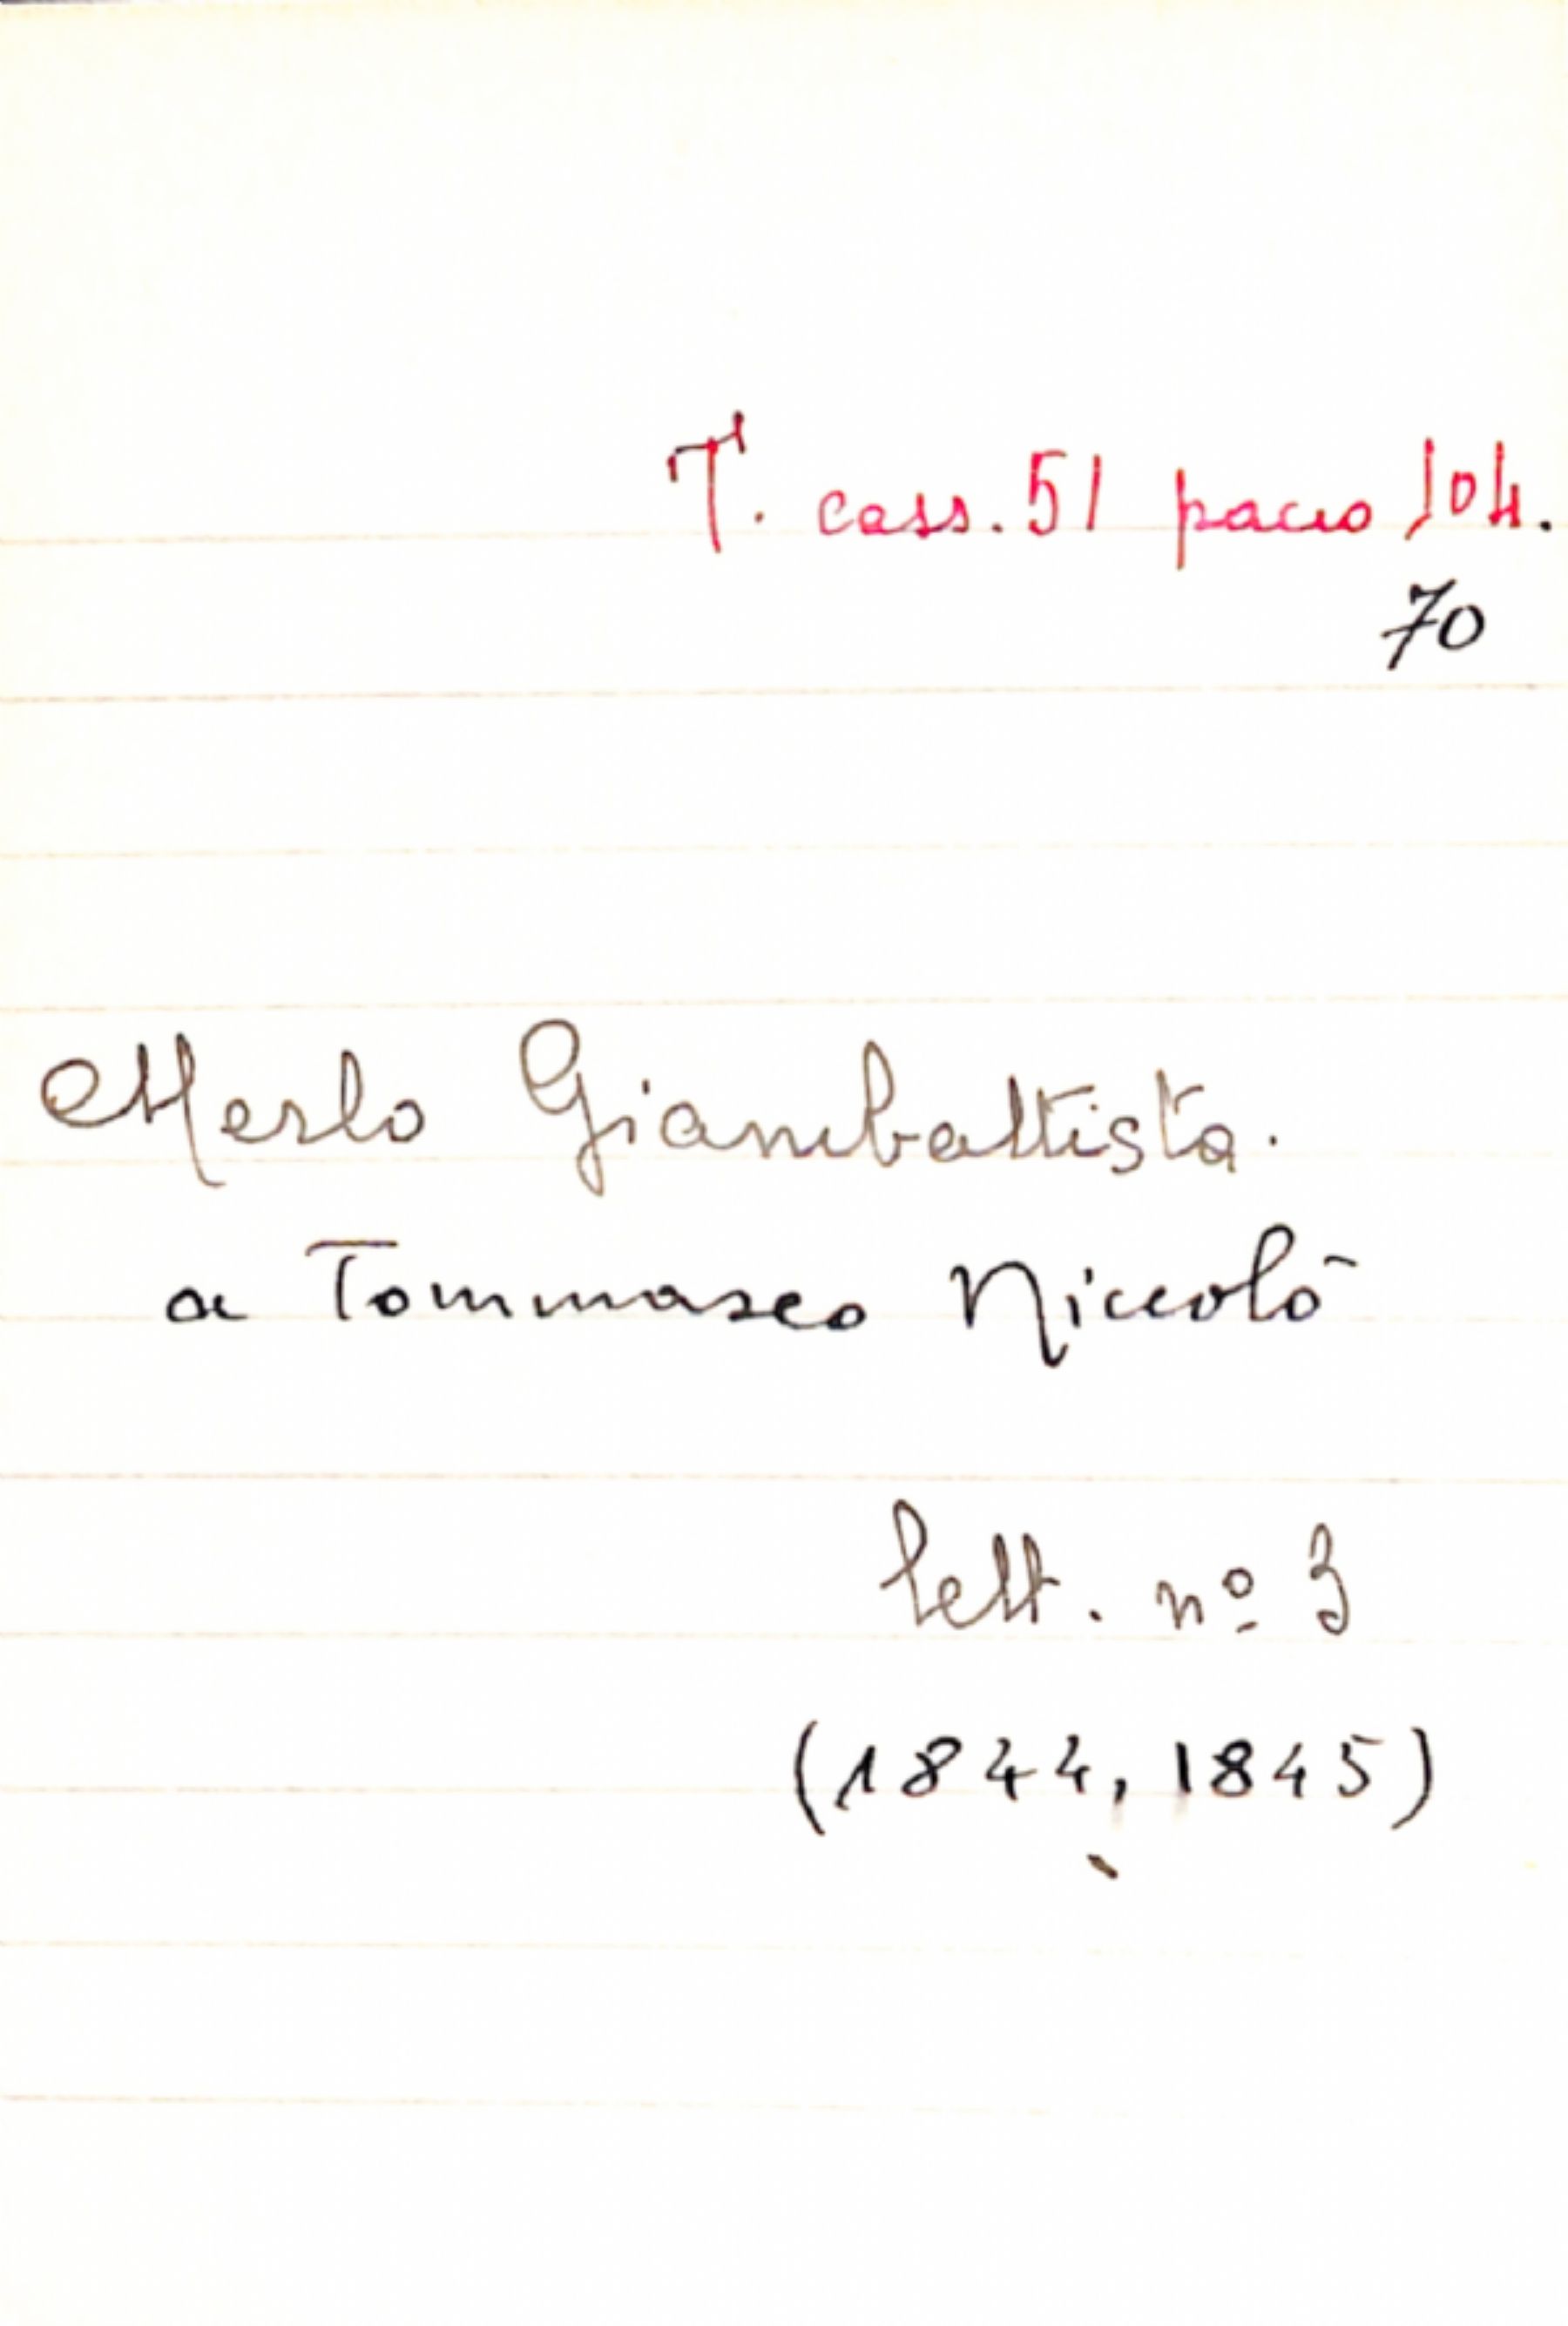 T. cass. 51 pacco 104.
70
Merlo Giambattista.
a Tommaseo Niccolò
lett. nº 3
(1844, 1845)